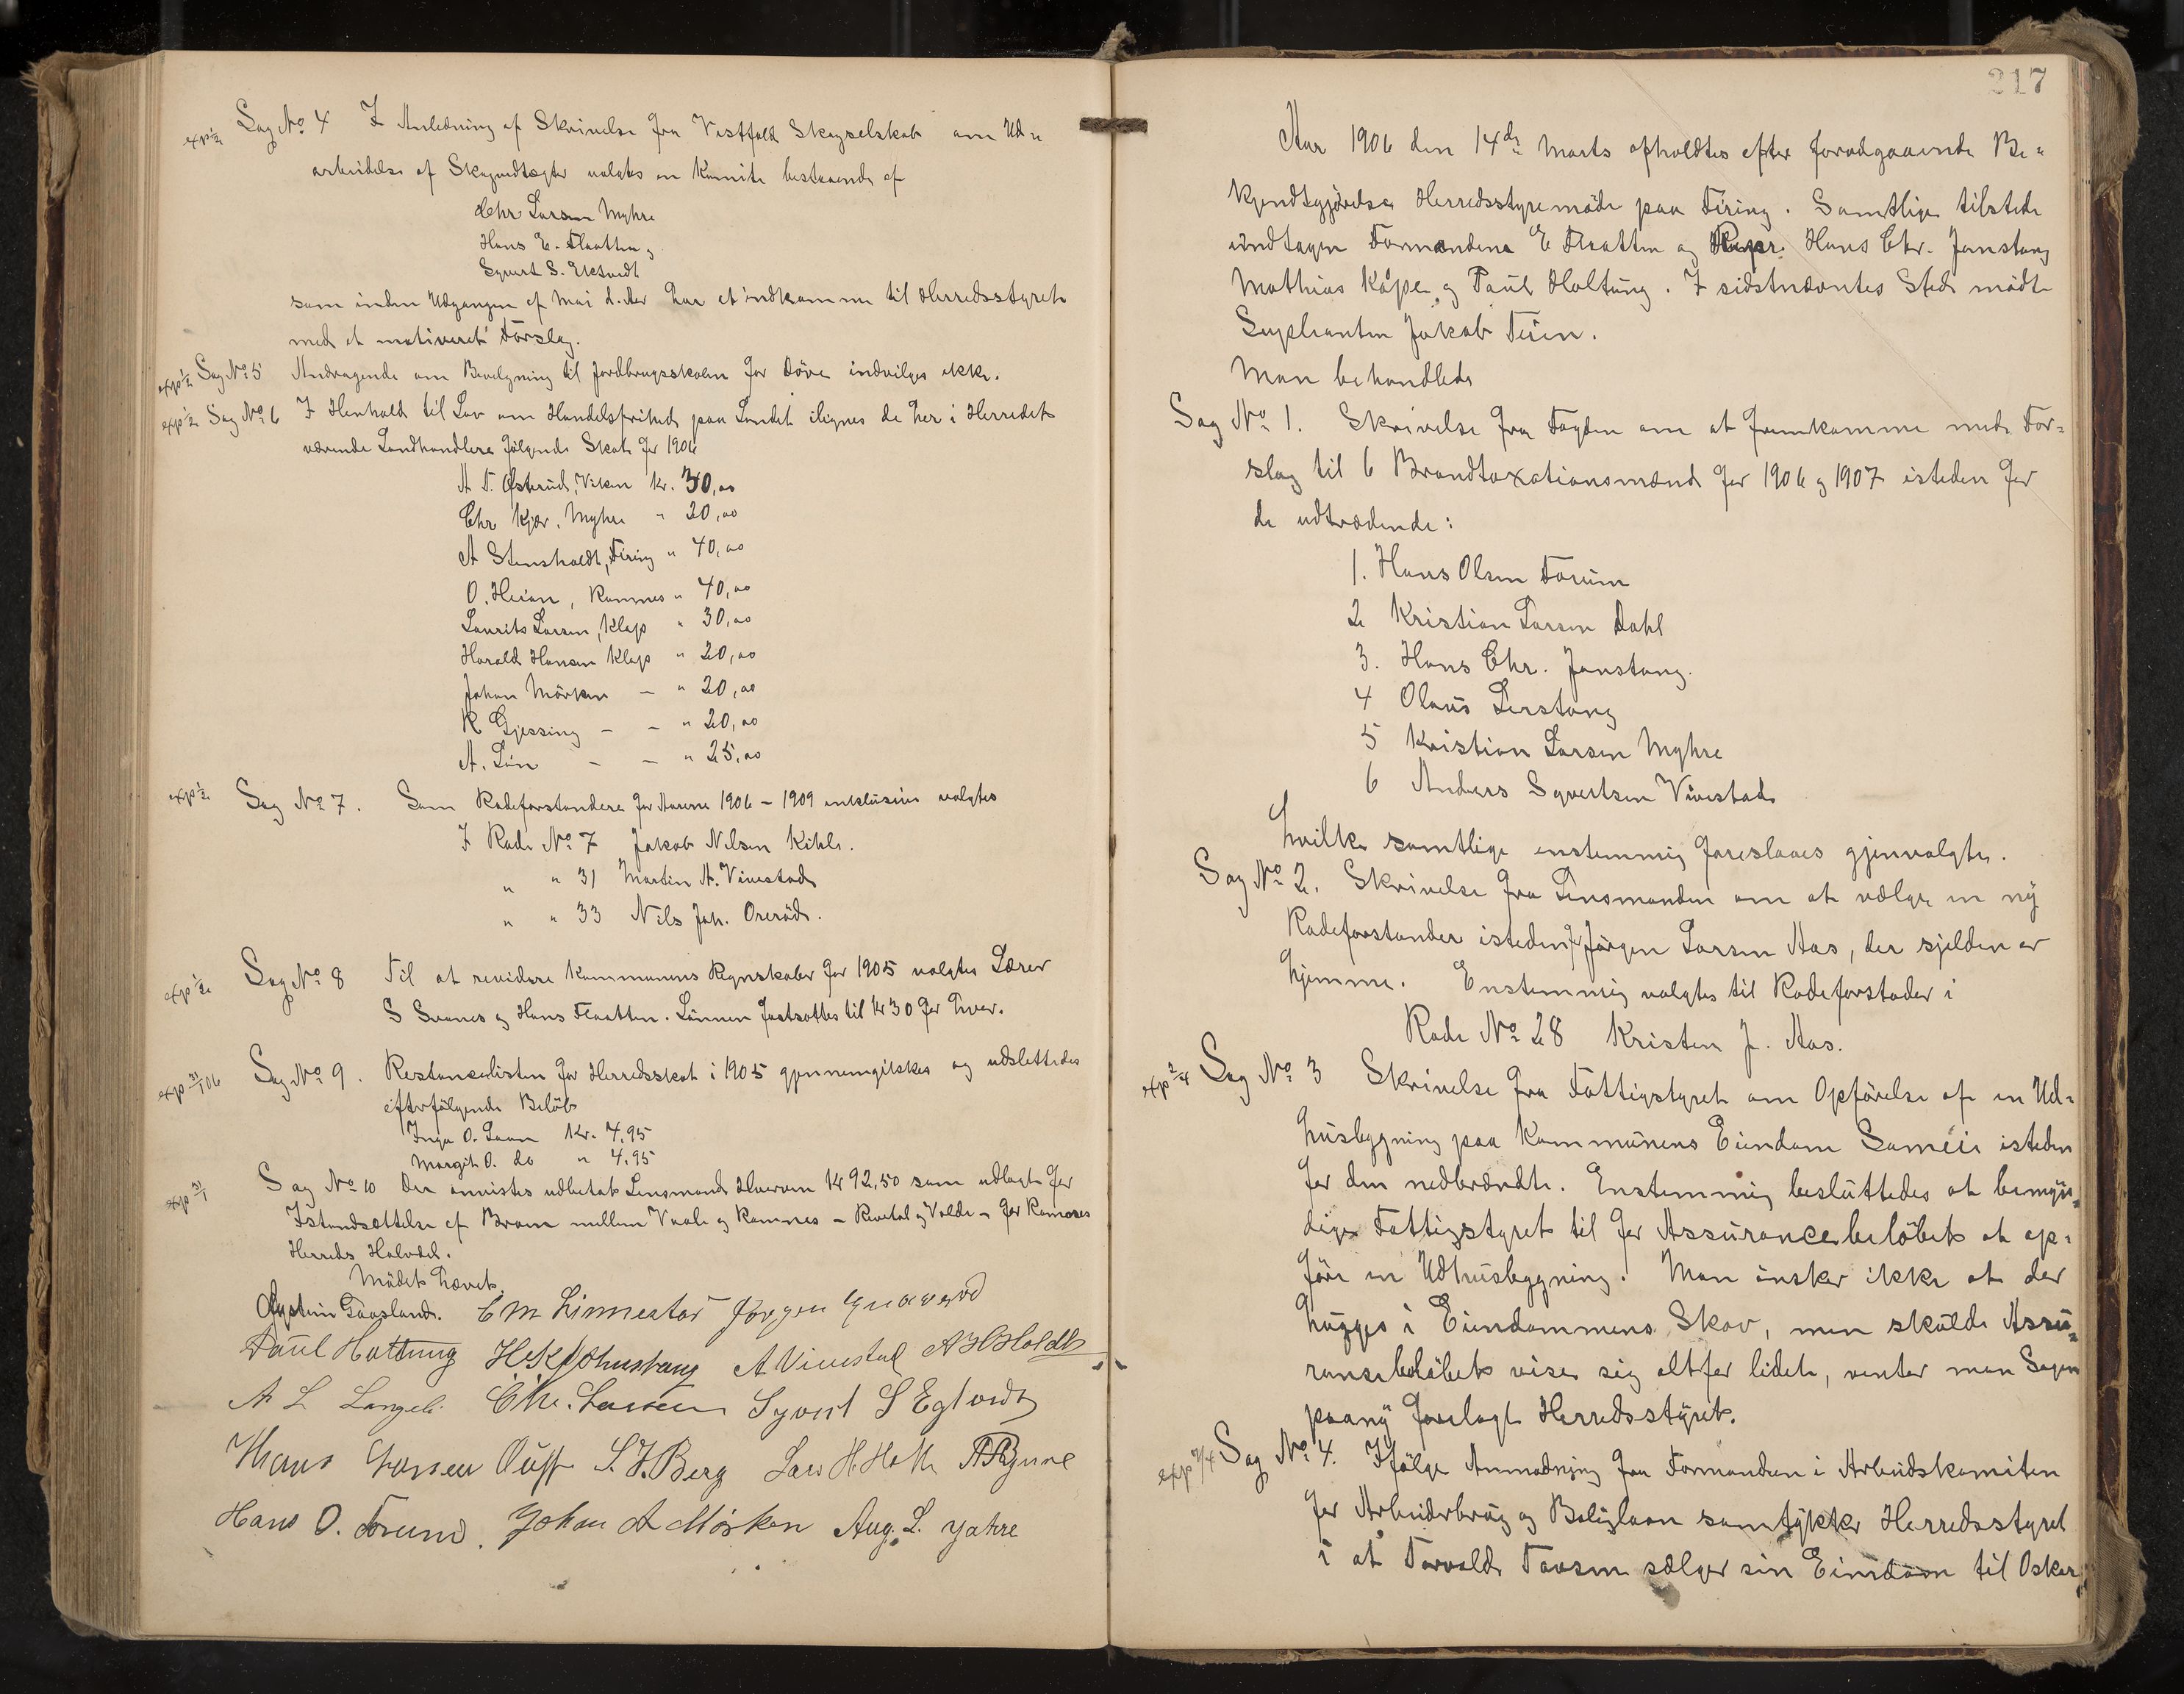 exp 1/2 Sag No 4 I Anledning af Skrivelse fra Vestfold Skogselskab om Ud-
arbeidelse af Skogvedtægter valgtes en Komite bestaaende af
Chr Larsen Myhre
Hans E. Flaatten og
Syvert S. Ektvedt
som inden Udgangen af Mai d. Aar har at indkomme til Herredsstyret
med et motiveret Forslag.
exp 1/2 Sag No 5 Andragende om Bevilgning til Jordbrugsskolen for Døve indvilges ikke.
exp 1/2 Sag No 6 I Henhold til Lov om Handelsfrihed paa Landet ilignes de her i Herredet
værende Landhandlere følgende Skat for 1906
A T. Østerud, Viken Kr. 30,00
Chr Kjær, Myhre " 20,00
A Stensholdt, Firing " 40,00
O. Heian, Ramnes " 40,00
Laurits Larsen, Klop " 30,00
Harald Hansen Klop " 20,00
Johan Mørken — " 20,00
R Gjessing — — " 20,00
A. Lien — — " 25,00
exp 1/2 Sag No 7. Som Rodeforstandere for Aarene 1906 – 1909 inklusive valgtes
I Rode No 7 Jakob Nilsen Kihle.
" " 31 Martin A. Vivestad
" " 33 Nils Joh. Orerød.
exp 1/2 Sag No 8 Til at revidere Kommunens Regnskaber for 1905 valgtes Lærer
S Svanes og Hans Flaatten. Lønnen fastsattes til Kr 30 for hver.
exp 31/1 06 Sag No 9. Restancelisten for Herredsskat i 1905 gjennemgikkes og udslettedes
efterfølgende Beløb
Inga O. Kr. 4,95
Margit O. do " 4,95
exp 31/1 Sag No 10 Der anvistes udbetalt Lensmand Kr 92,50 som udlagt for
Istandsættelse af Broen mellem Vaale og Ramnes – Revetal og Volde – for Ramnes
Herreds Halvdel.
Mødet hævet.
Øystein Gaasland. E M Linnestad Jørgen
Paul Holtung H. Kr Johnstang A Vivestad A B Holdt
A L Langeli Chr. Larsen Syvert S Egtvedt
Hans Larsen S. J. Berg Lars H. A
Hans O. Forum. Johan A Mørken Aug. L. Jahre
217
Aar 1906 den 14de Marts afholdtes efter forudgaaende Be-
kjendtgjørelse Herredsstyremøde paa Firing. Samtlige tilstede
undtagen Formanden E Flaatten og Repr. Hans Chr. Jonstang
Mathias Kåpe og Paul Holtung. I sidstnævntes Sted mødte
Supleanten Jakob Feen.
Man behandlede
Sag No 1. Skrivelse fra Fogden om at fremkomme med For-
slag til 6 Brandtaxationsmænd for 1906 og 1907 isteden for
de udtrædende:
1. Hans Olsen Forum
2 Kristian Larsen Dahl
3. Hans Chr. Jonstang.
4 Olaus Lerstang
5 Kristian Larsen Myhre
6 Anders Syvertsen Vivestad
hvilke samtlige enstemmig foreslaaes gjenvalgte.
Sag No 2. Skrivelse fra Lensmanden om at vælge en ny
Rodeforstander isteden for Jørgen Larsen Aas, der sjelden er
hjemme. Enstemmig valgtes til Rodeforstader i
Rode No 28 Kristen J. Aas.
exp 2/4 Sag No 3 Skrivelse fra Fattigstyret om Opførelse af en Ud-
husbygning paa Kommunens Eiendom Sameie isteden
for den nedbrændte. Enstemmig besluttedes at bemyn-
dige Fattigstyret til for Assurancebeløbet at op-
føre en Udhusbygning. Man ønsker ikke at der
hugges i Eiendommens Skov, men skulde Assu-
ransebeløbet vise sig altfor lidet, venter man Sagen
paany forelagt Herredsstyret.
exp 2/4 Sag No 4. Ifølge Anmodning fra Formanden i Arbeidskomiten
for Arbeiderbrug og Boliglaan samtykker Herredsstyret
i at Torvald Tovsen sælger sin Eiendom til Oskar